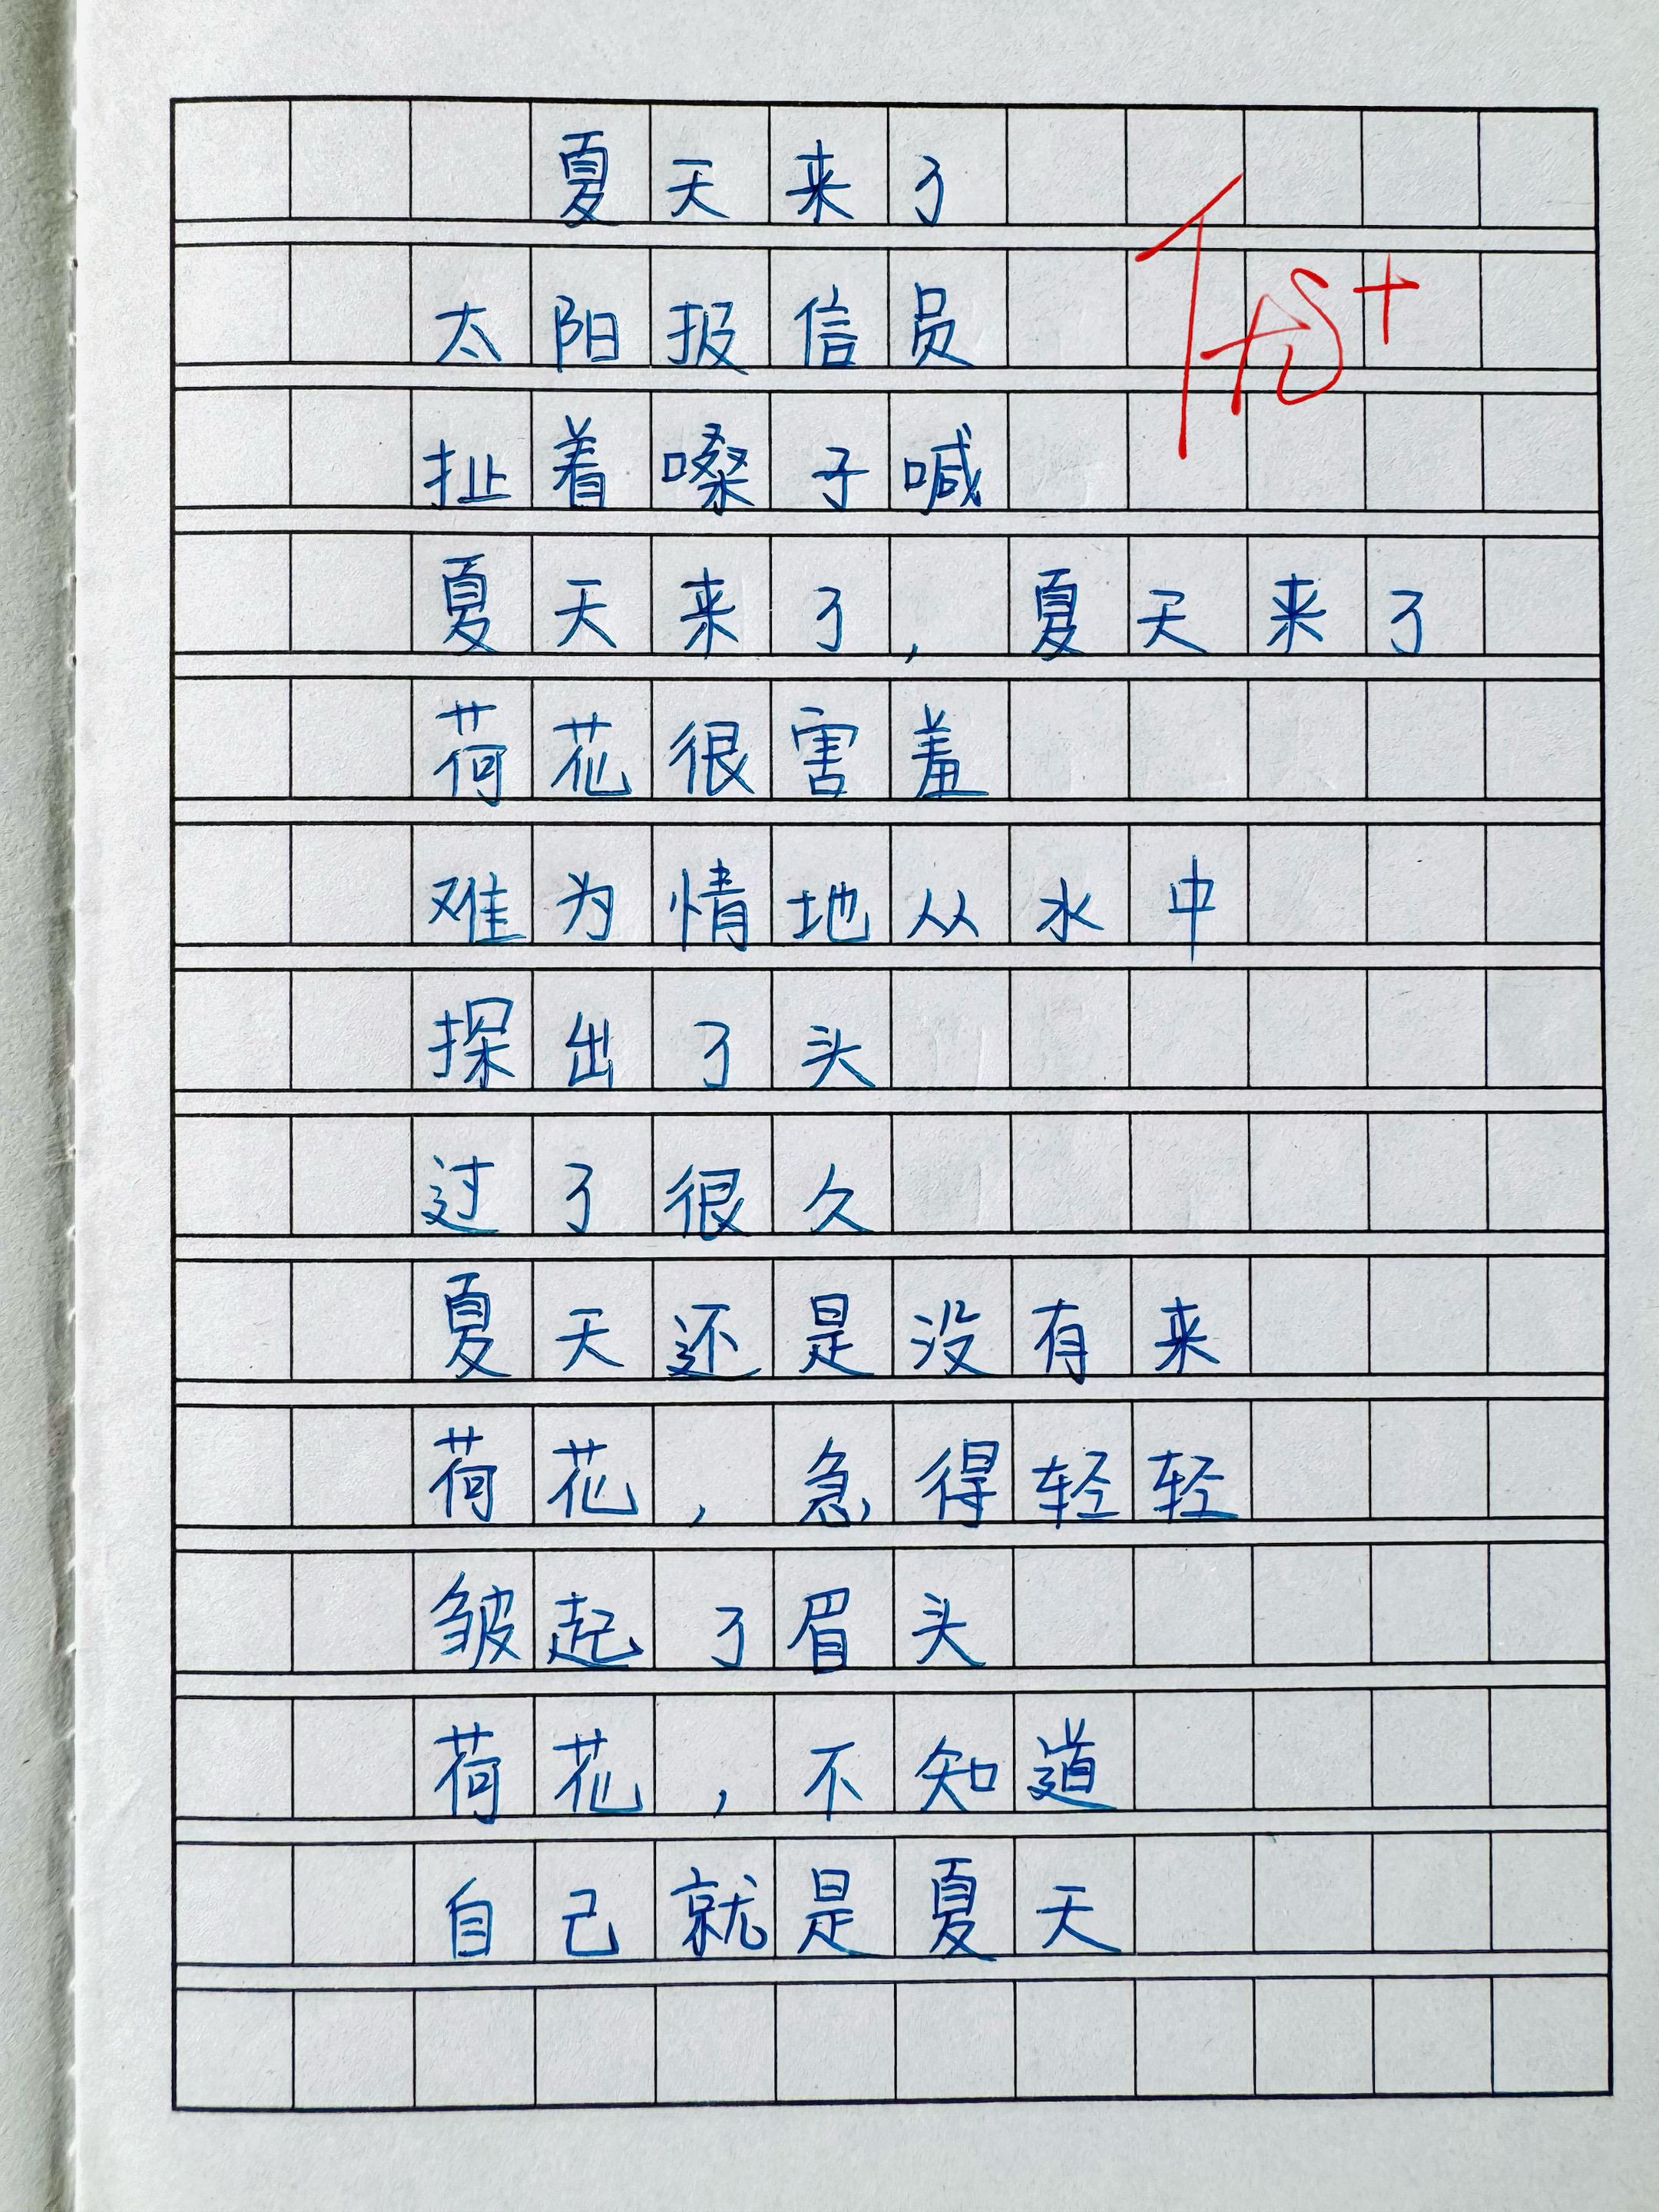 夏天来了
优+
太阳报信员
扯着嗓子喊
夏天来了,夏天来了
荷花很害羞
难为情地从水中
探出了头
过了很久
夏天还是没有来
荷花,急得轻轻
皱起了眉头
荷花,不知道
自己就是夏天